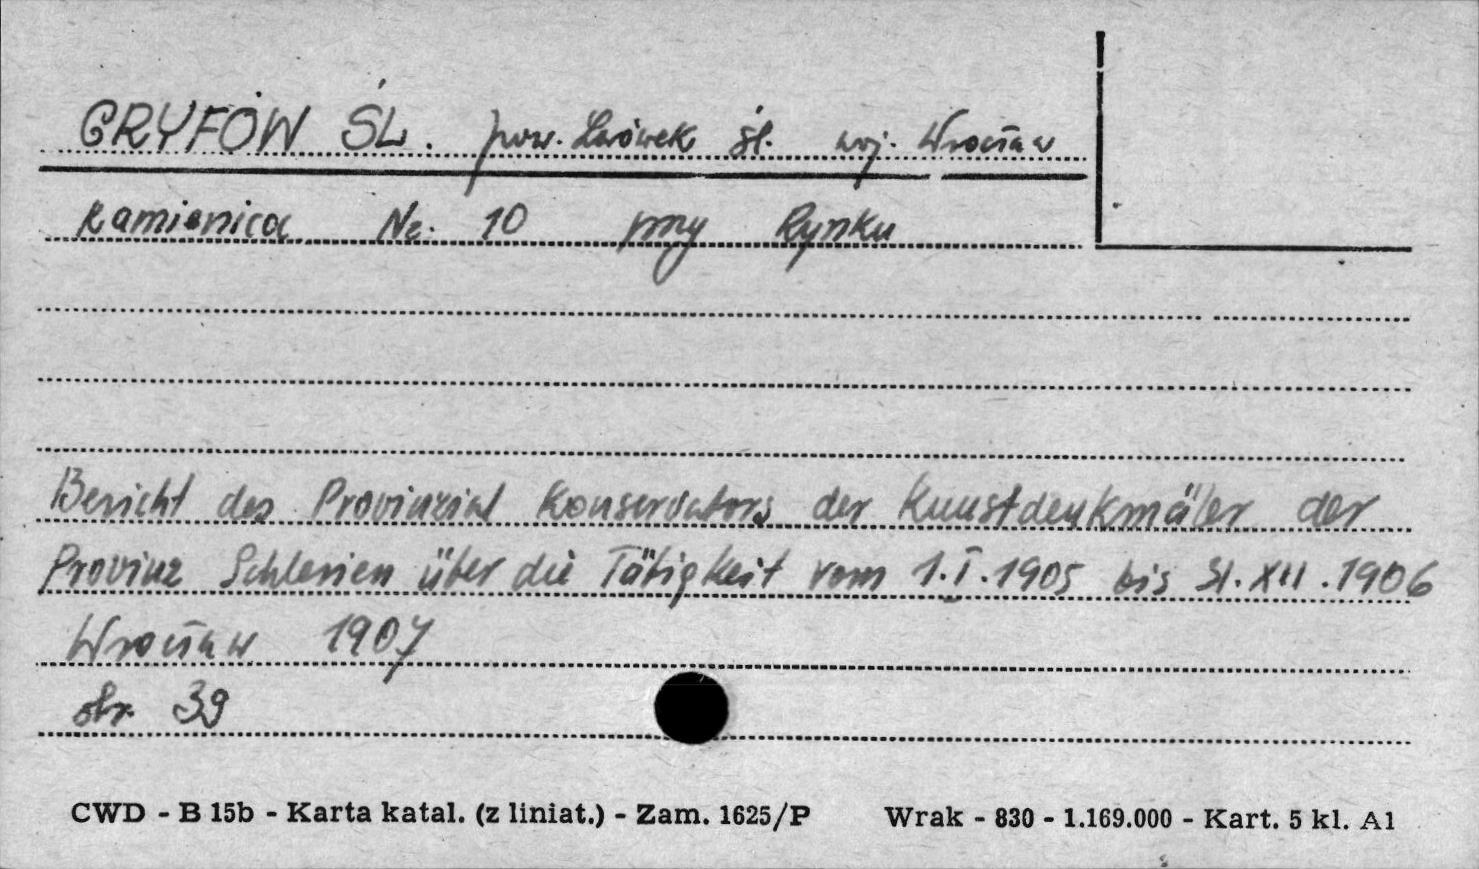 GRYFÓW ŚL. pow. Lwówek Śl. woj. Wrocław
Kamienica Nr. 10 przy Rynku
Bericht des Provinzial Konservators der Kunstdenkmäler der
Provinz Schlesien über die Tätigkeit vom 1.I.1905 bis 31.XII.1906
Wrocław 1907
str. 39
CWD - B 15b - Karta katal. (z liniat.) - Zam. 1625/P Wrak - 830 - 1.169.000 - Kart. 5 kl. A1